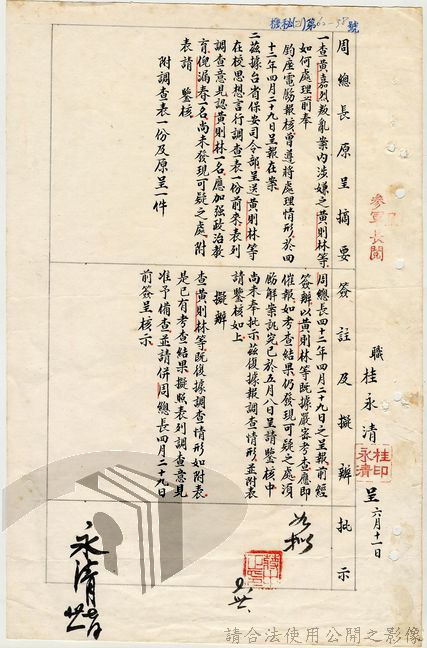 機秘(乙)第60-58號
周總長原呈摘要
一查黃嘉烈叛亂案內涉嫌之黃則林等
如何處理前奉
鈞座電飭報核曾遵將處理情形於四
十二年四月二十九日呈報在案
二茲據台省保安司令部呈送黃則林等
在校思想言行調查表一份前來表列
調查意見認黃則林一名應加強政治教
育倪漏春一名尚未發現可疑之處附
表請 鑒核
附調查表一份及原呈一件
簽註及擬辦
周總長四十二年四月二十九日之呈報前經
簽辦以黃則林等既據嚴密考查應即
催報如考查結果仍發現可疑之處須
飭解案訊究已於五月八日呈請鑒核中
尚未奉批示茲復據報調查情形並附表
請鑒核如上
擬辦
查黃則林等既復據調查情形如附表
是已有考查結果擬照表列調查意見
准予備查並請併周總長四月二十九日
前簽呈核示
批示
如擬
參軍長閱
職桂永清呈 六月十一日
桂永清印
永清
請合法使用公開之影像